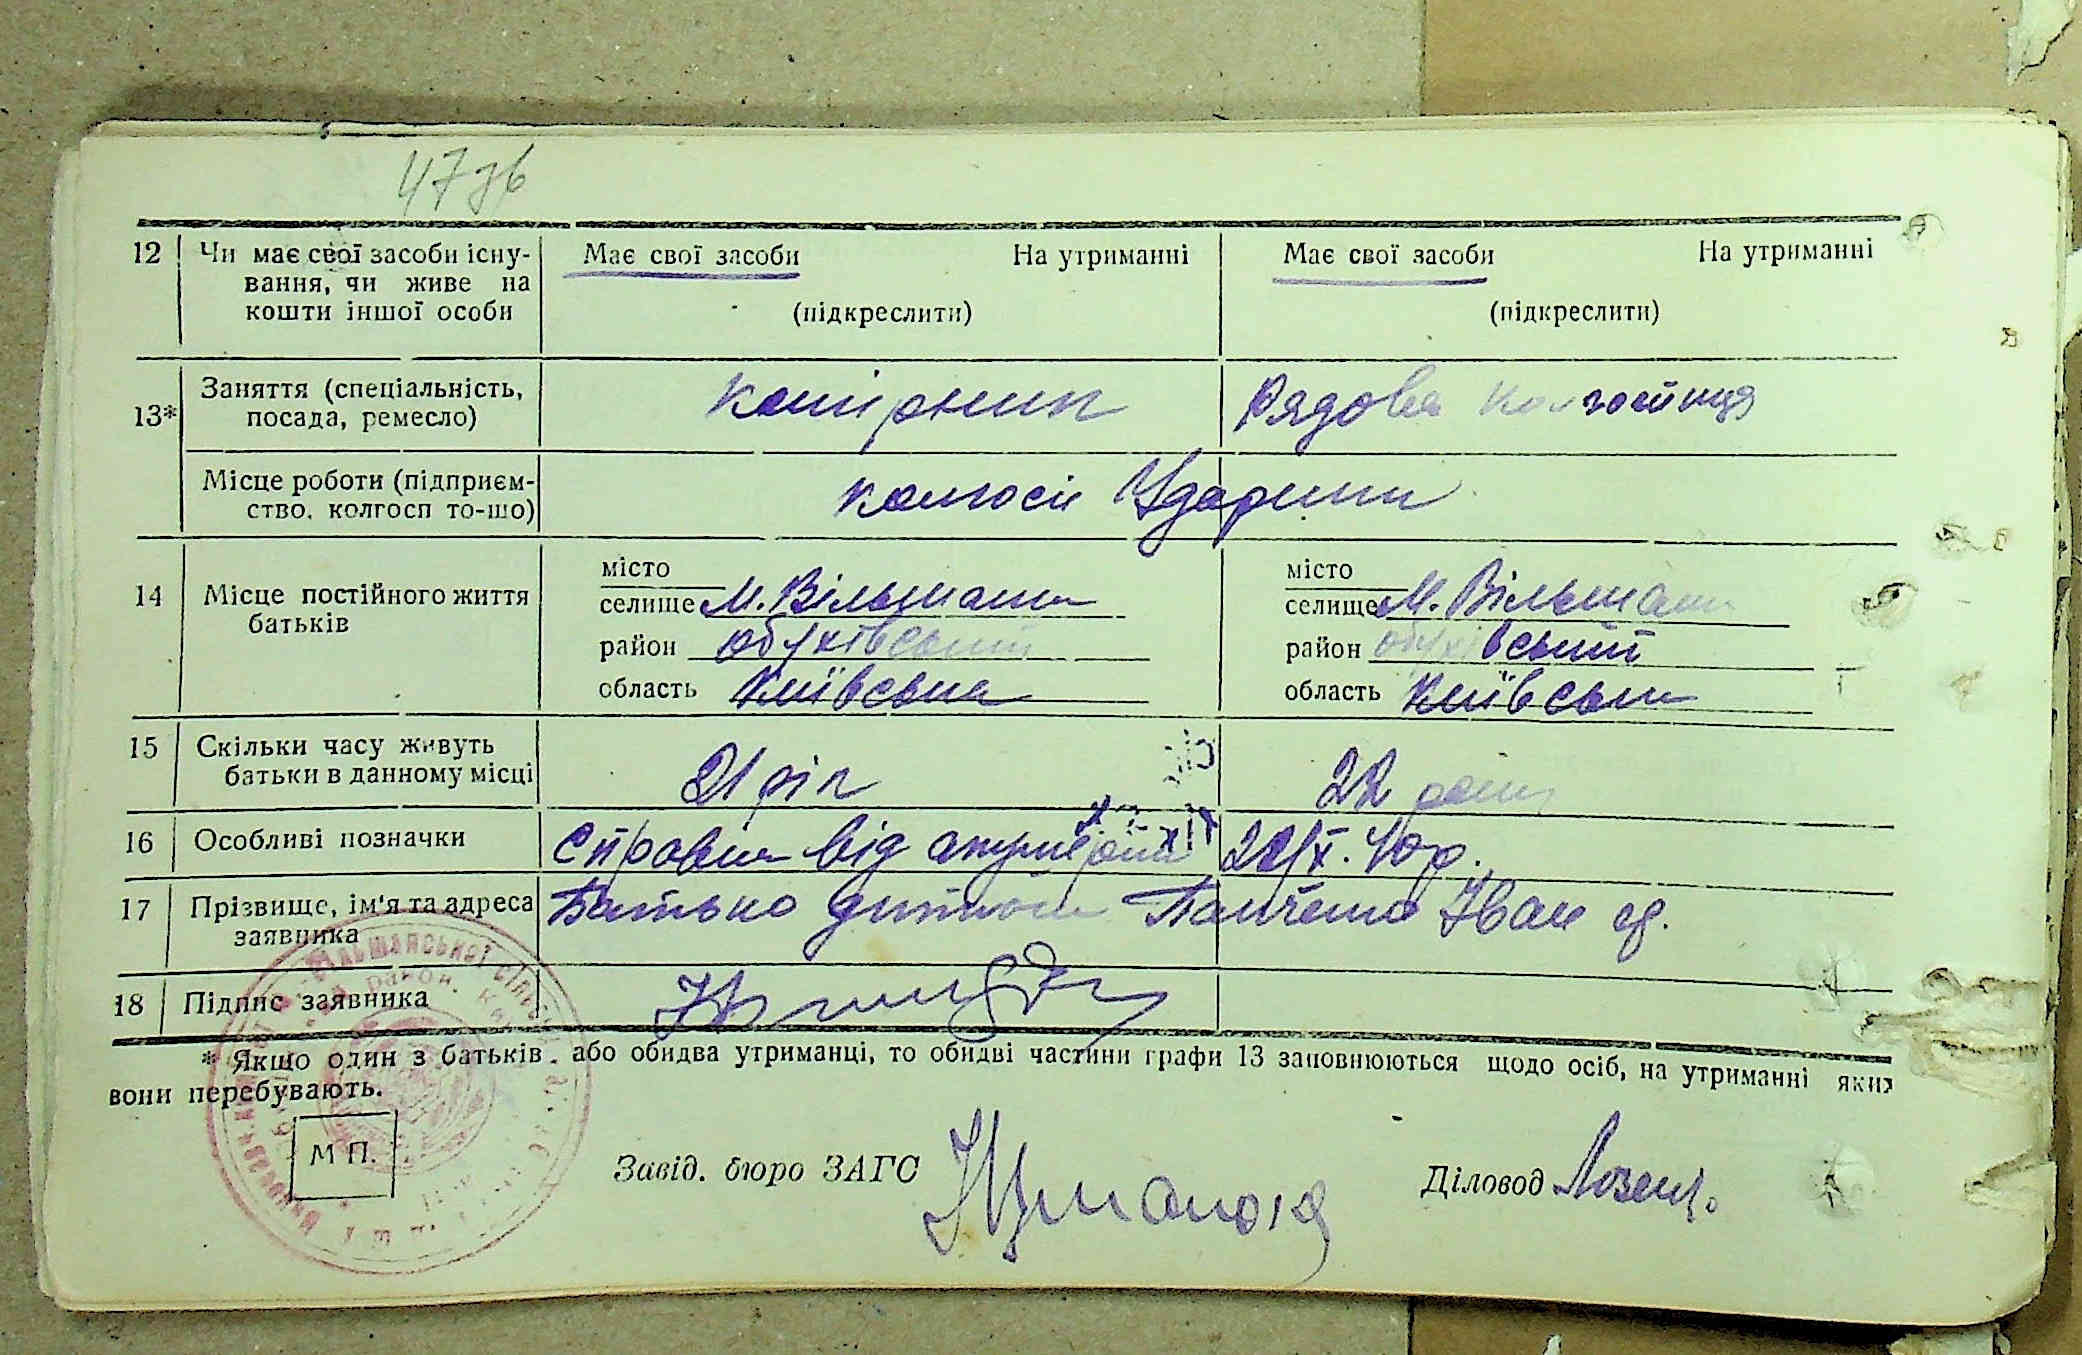 47зв
12 Чи має свої засоби існу- Має свої засоби На утриманні Має свої засоби На утриманні
вання, чи живе на
кошти іншої особи (підкреслити) (підкреслити)
13* Заняття (спеціальність, Рядова Колгоспниця
посада, ремесло)
Місце роботи (підприєм- колгосп Ударник
ство, колгосп то-що)
14 Місце постійного життя місто місто
батьків селище М. Вільшанка селище М. Вільшанка
район обухівський район обухівський
область Київська область Київська
15 Скільки часу живуть 21 рік 22 роки
батьки в данному місці
16 Особливі позначки Справка від акушерки 20/X. 40р.
17 Прізвище, ім'я та адреса Батько дитини Панченко Іван
заявника
18 Підпис заявника
* Якщо один з батьків, або обидва утриманці, то обидві частини графи 13 заповнюються щодо осіб, на утриманні яких
вони перебувають.
М П.
Завід. бюро ЗАГС Діловод